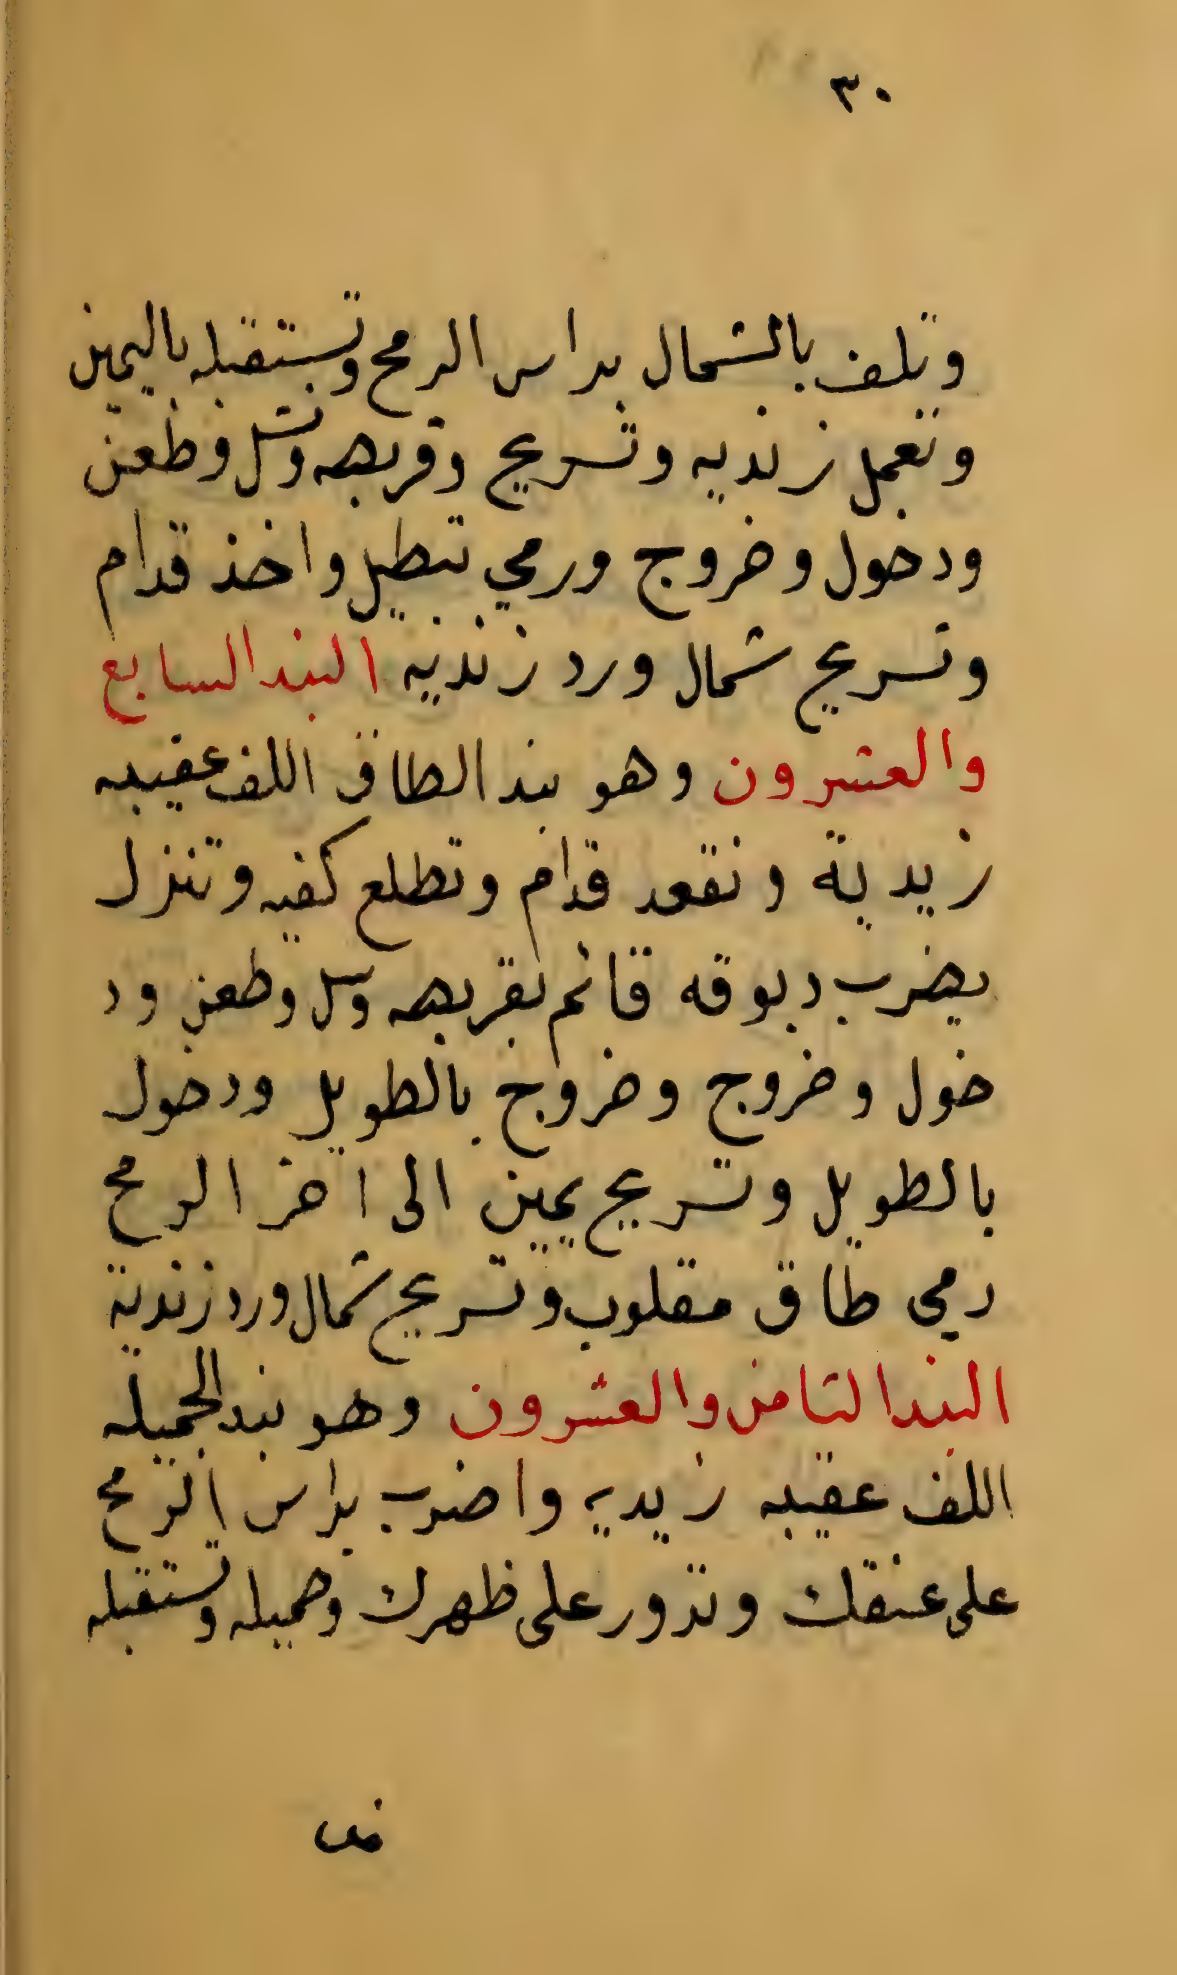 ٣٠
وتلف بالشمال براس الرمح وتستقبله باليمين
وتعمل زنديه وتسريح وقربصه وشل وطعن
ودخول وخروج ورمي تبطيل واخذ قدام
وتسريح شمال ورد زنديه البند السابع
والعشرون وهو بند الطاق اللف عقيبه
زيدية وتقعد قدام وتطلع كفيه وتنزل
بضرب دبوقه قائم بقربصه وشل وطعن ود
خول وخروج وخروج بالطويل ودخول
بالطويل وتسريح يمين الى آخر الرمح
رمي طاق مقلوب وتسريح شمال ورد زندية
البند الثامن والعشرون وهو بند الجميله
اللف عقيبه زيديه واضرب براس الرمح
على عنقك وتدور على ظهرك وحميله وتستقبله